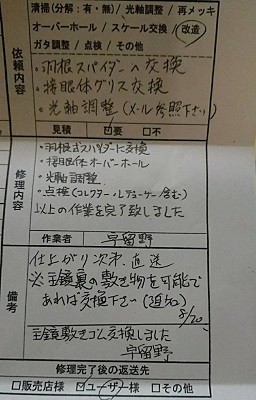 清掃(分解：有・無)/ 光軸調整 / 再メッキ
オーバーホール / スケール交換 / 改造
ガタ調整 / 点検 / その他
依頼内容
・羽根スパイダーへ交換
・接眼体グリス交換
・光軸調整(メール参照下さい)
見積 ☑要 □不
修理内容
・羽根式スパイダーに交換
・接眼体オーバーホール
・光軸調整
・点検(コレクター・レデューサー含む)
以上の作業を完了致しました
作業者 早留野
備考
仕上がり次第直送
※主鏡裏の敷き物を可能で
あれば交換下さい(追加)
8/20
主鏡敷きゴム交換しました
早留野
修理完了後の返送先
□販売店様 ☑ユーザー様 □その他